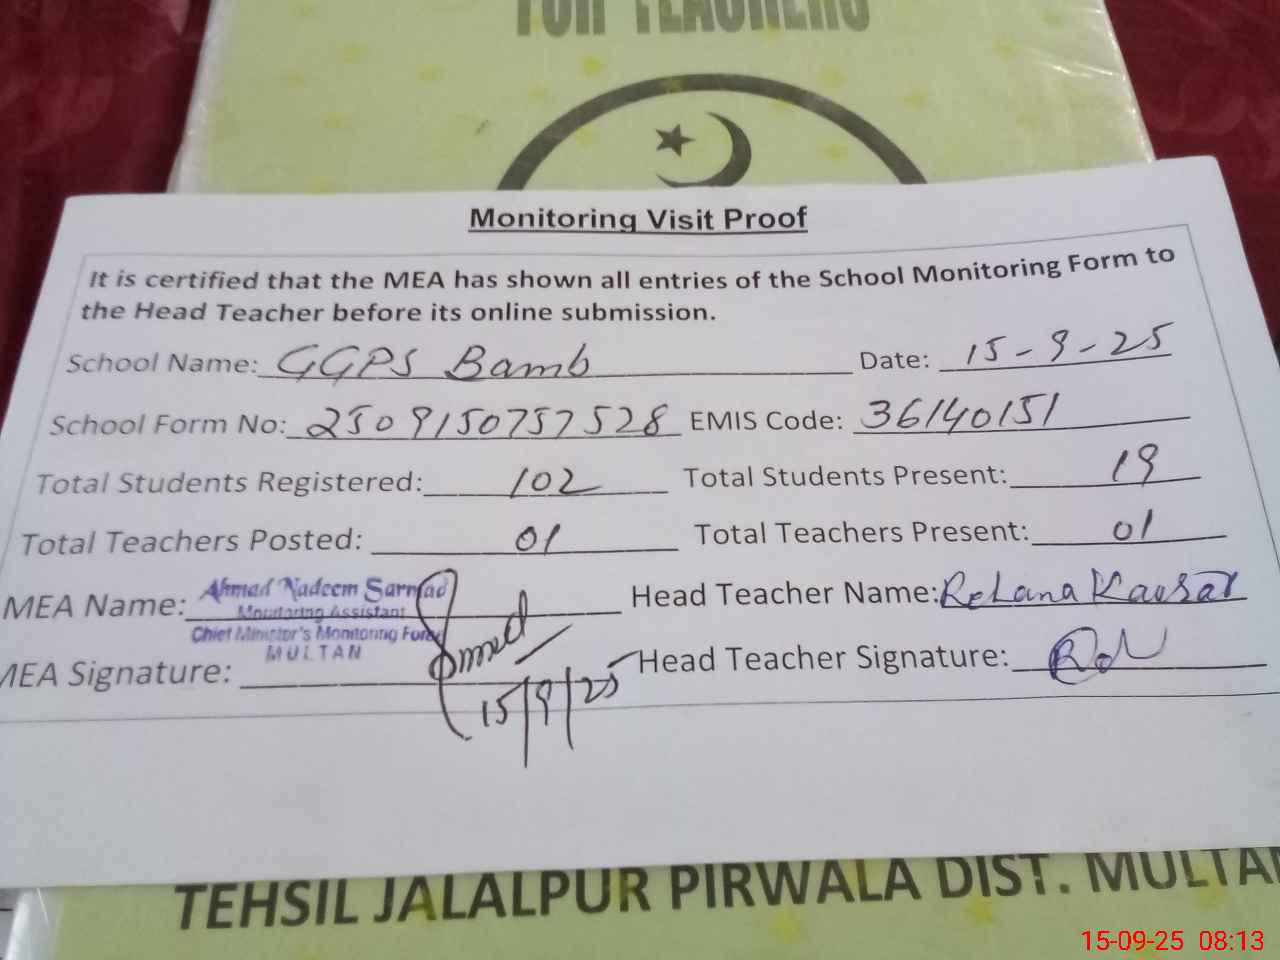 FOR TEACHERS
Monitoring Visit Proof
It is certified that the MEA has shown all entries of the School Monitoring Form to
the Head Teacher before its online submission.
School Name: GGPS Bamb Date: 15-9-25
School Form No: 250915075 7528 EMIS Code: 36140151
Total Students Registered: 102 Total Students Present: 19
Total Teachers Posted: 01 Total Teachers Present: 01
MEA Name: Ahmad Nadeem Sarmad Head Teacher Name: Rehana Kausar
Monitoring Assistant
Chief Minister's Monitoring Force
MULTAN
MEA Signature: Head Teacher Signature:
15/9/25
TEHSIL JALALPUR PIRWALA DIST. MULTAN
15-09-25 08:13